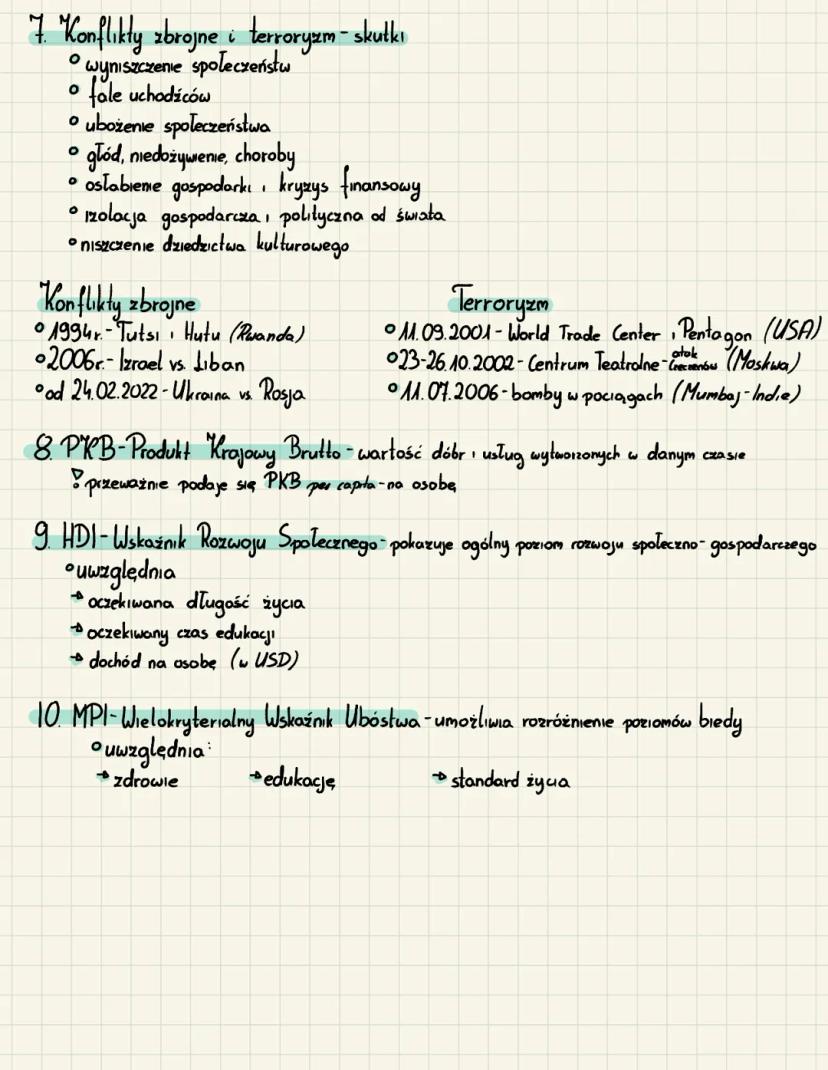 7. Konflikty zbrojne i terroryzm - skutki
° wyniszczenie społeczeństw
° fale uchodźców
° ubożenie społeczeństwa
° głód, niedożywienie, choroby
° osłabienie gospodarki i kryzys finansowy
° izolacja gospodarcza i polityczna od świata
° niszczenie dziedzictwa kulturowego
Konflikty zbrojne
° 1994r. - Tutsi i Hutu (Rwanda)
° 2006r. - Izrael vs. Liban
° od 24.02.2022 - Ukraina vs. Rosja
Terroryzm
° 11.09.2001 - World Trade Center i Pentagon (USA)
° 23-26.10.2002 - Centrum Teatralne - atak Czeczenów (Moskwa)
° 11.07.2006 - bomby w pociągach (Mumbaj - Indie)
8. PKB - Produkt Krajowy Brutto - wartość dóbr i usług wytworzonych w danym czasie
! przeważnie podaje się PKB per capita - na osobę
9. HDI - Wskaźnik Rozwoju Społecznego - pokazuje ogólny poziom rozwoju społeczno - gospodarczego
° uwzględnia
→ oczekiwana długość życia
→ oczekiwany czas edukacji
→ dochód na osobę (w USD)
10. MPI - Wielokryterialny Wskaźnik Ubóstwa - umożliwia rozróżnienie poziomów biedy
° uwzględnia:
→ zdrowie → edukację → standard życia